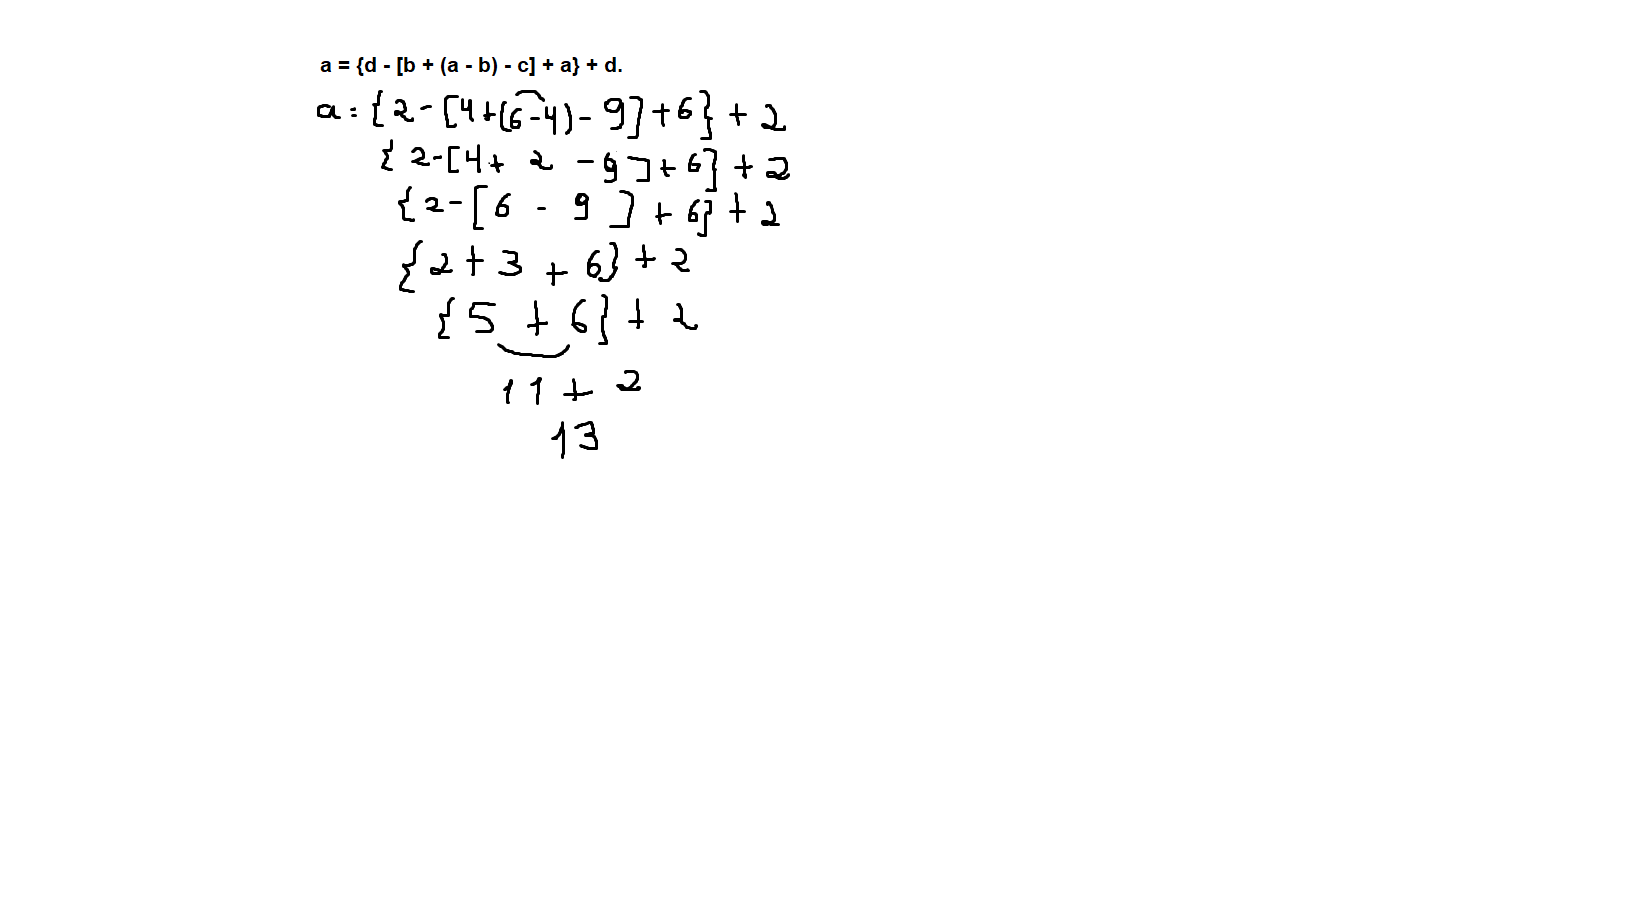 a = {d - [b + (a - b) - c] + a} + d.
a = {2 - [4 + (6 - 4) - 9] + 6} + 2
{2 - [4 + 2 - 9] + 6} + 2
{2 - [6 - 9] + 6} + 2
{2 + 3 + 6} + 2
{5 + 6} + 2
11 + 2
13